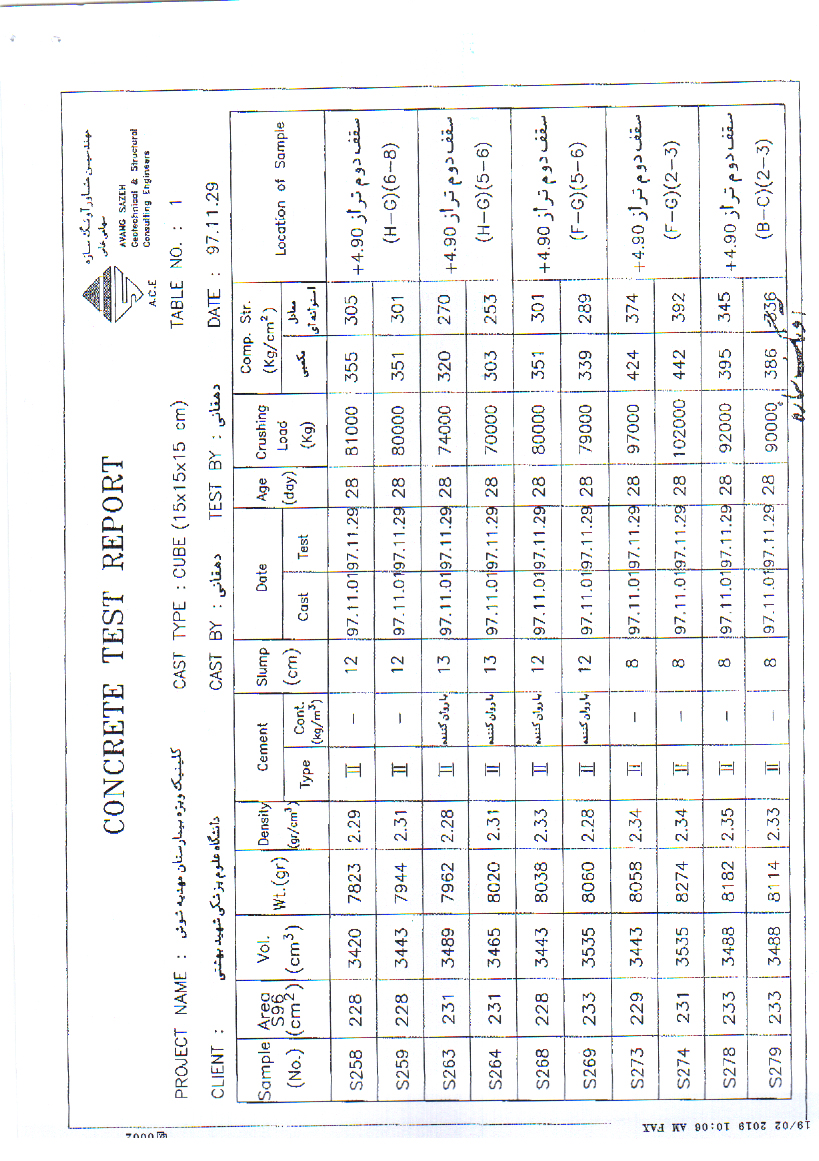 CONCRETE TEST REPORT
مهندسین مشاور آونگ سازه
سهامی خاص
AVANG SAZEH
Geotechnical & Structural
Consulting Engineers
A.C.E
PROJECT NAME : کلینیک ویژه بیمارستان مهدیه شوش CAST TYPE : CUBE (15x15x15 cm) TABLE NO. : 1
CLIENT : دانشگاه علوم پزشکی شهید بهشتی CAST BY : دهقانی TEST BY : دهقانی DATE : 97.11.29
Sample (No.) Area S96 (cm²) Vol. (cm³) Wt.(gr) Density (gr/cm³) Cement Type Cont. (kg/m³) Slump (cm) Date Cast Test Age (day) Crushing Load (Kg) Comp. Str. (Kg/cm²) مکعبی معادل استوانه ای Location of Sample
S258 228 3420 7823 2.29 II – 12 97.11.01 97.11.29 28 81000 355 305 سقف دوم تراز +4.90
S259 228 3443 7944 2.31 II – 12 97.11.01 97.11.29 28 80000 351 301 (H-G)(6-8)
S263 231 3489 7962 2.28 II باروان کننده 13 97.11.01 97.11.29 28 74000 320 270 سقف دوم تراز +4.90
S264 231 3465 8020 2.31 II باروان کننده 13 97.11.01 97.11.29 28 70000 303 253 (H-G)(5-6)
S268 228 3443 8038 2.33 II باروان کننده 12 97.11.01 97.11.29 28 80000 351 301 سقف دوم تراز +4.90
S269 233 3535 8060 2.28 II باروان کننده 12 97.11.01 97.11.29 28 79000 339 289 (F-G)(5-6)
S273 229 3443 8058 2.34 II – 8 97.11.01 97.11.29 28 97000 424 374 سقف دوم تراز +4.90
S274 231 3535 8274 2.34 II – 8 97.11.01 97.11.29 28 102000 442 392 (F-G)(2-3)
S278 233 3488 8182 2.35 II – 8 97.11.01 97.11.29 28 92000 395 345 سقف دوم تراز +4.90
S279 233 3488 8114 2.33 II – 8 97.11.01 97.11.29 28 90000 386 336 (B-C)(2-3)
19/02 2019 10:06 AM FAX
0002